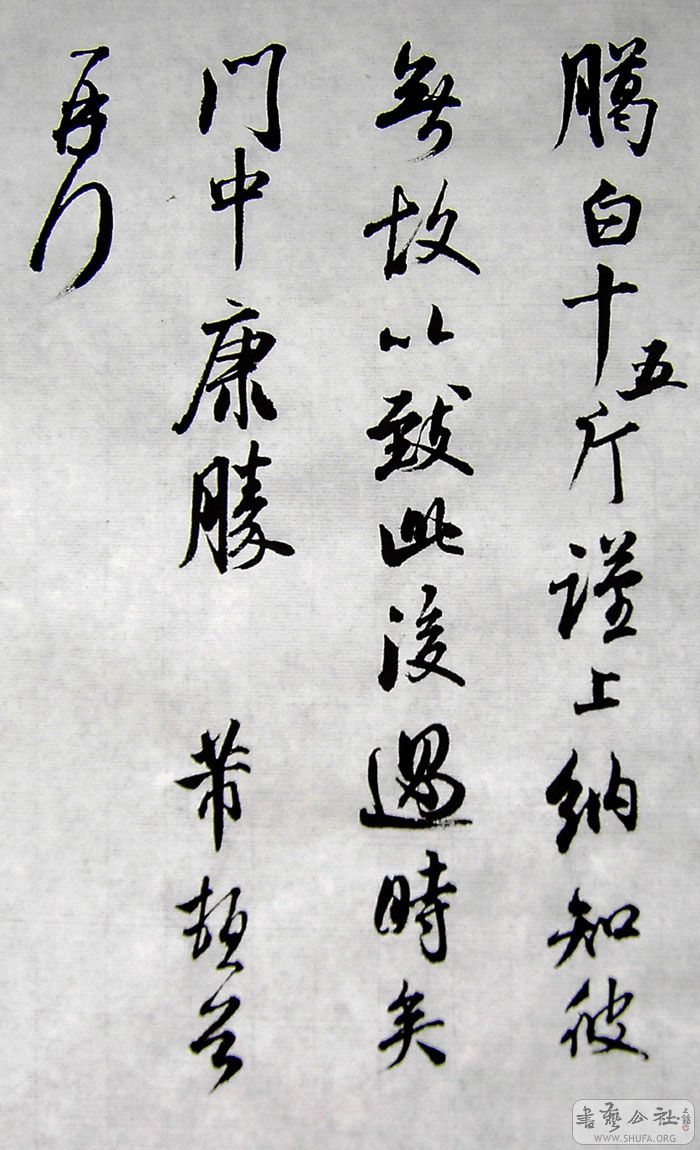 臈白十五斤謹上納知彼
無故以致此後過時矣
門中康勝 芾頓首
再行
書藝公社
WWW.SHUFA.ORG